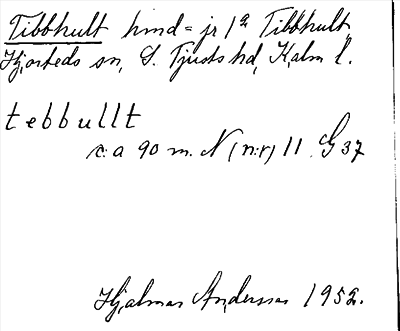 Tibbhult hmd = jr 1a Tibbhult,
Hjorteds sn, S. Tjusts hd, Kalm l.
tebbullt
c:a 90 m. N (n:r) 11. G 37
Hjalmar Andersson 1952.